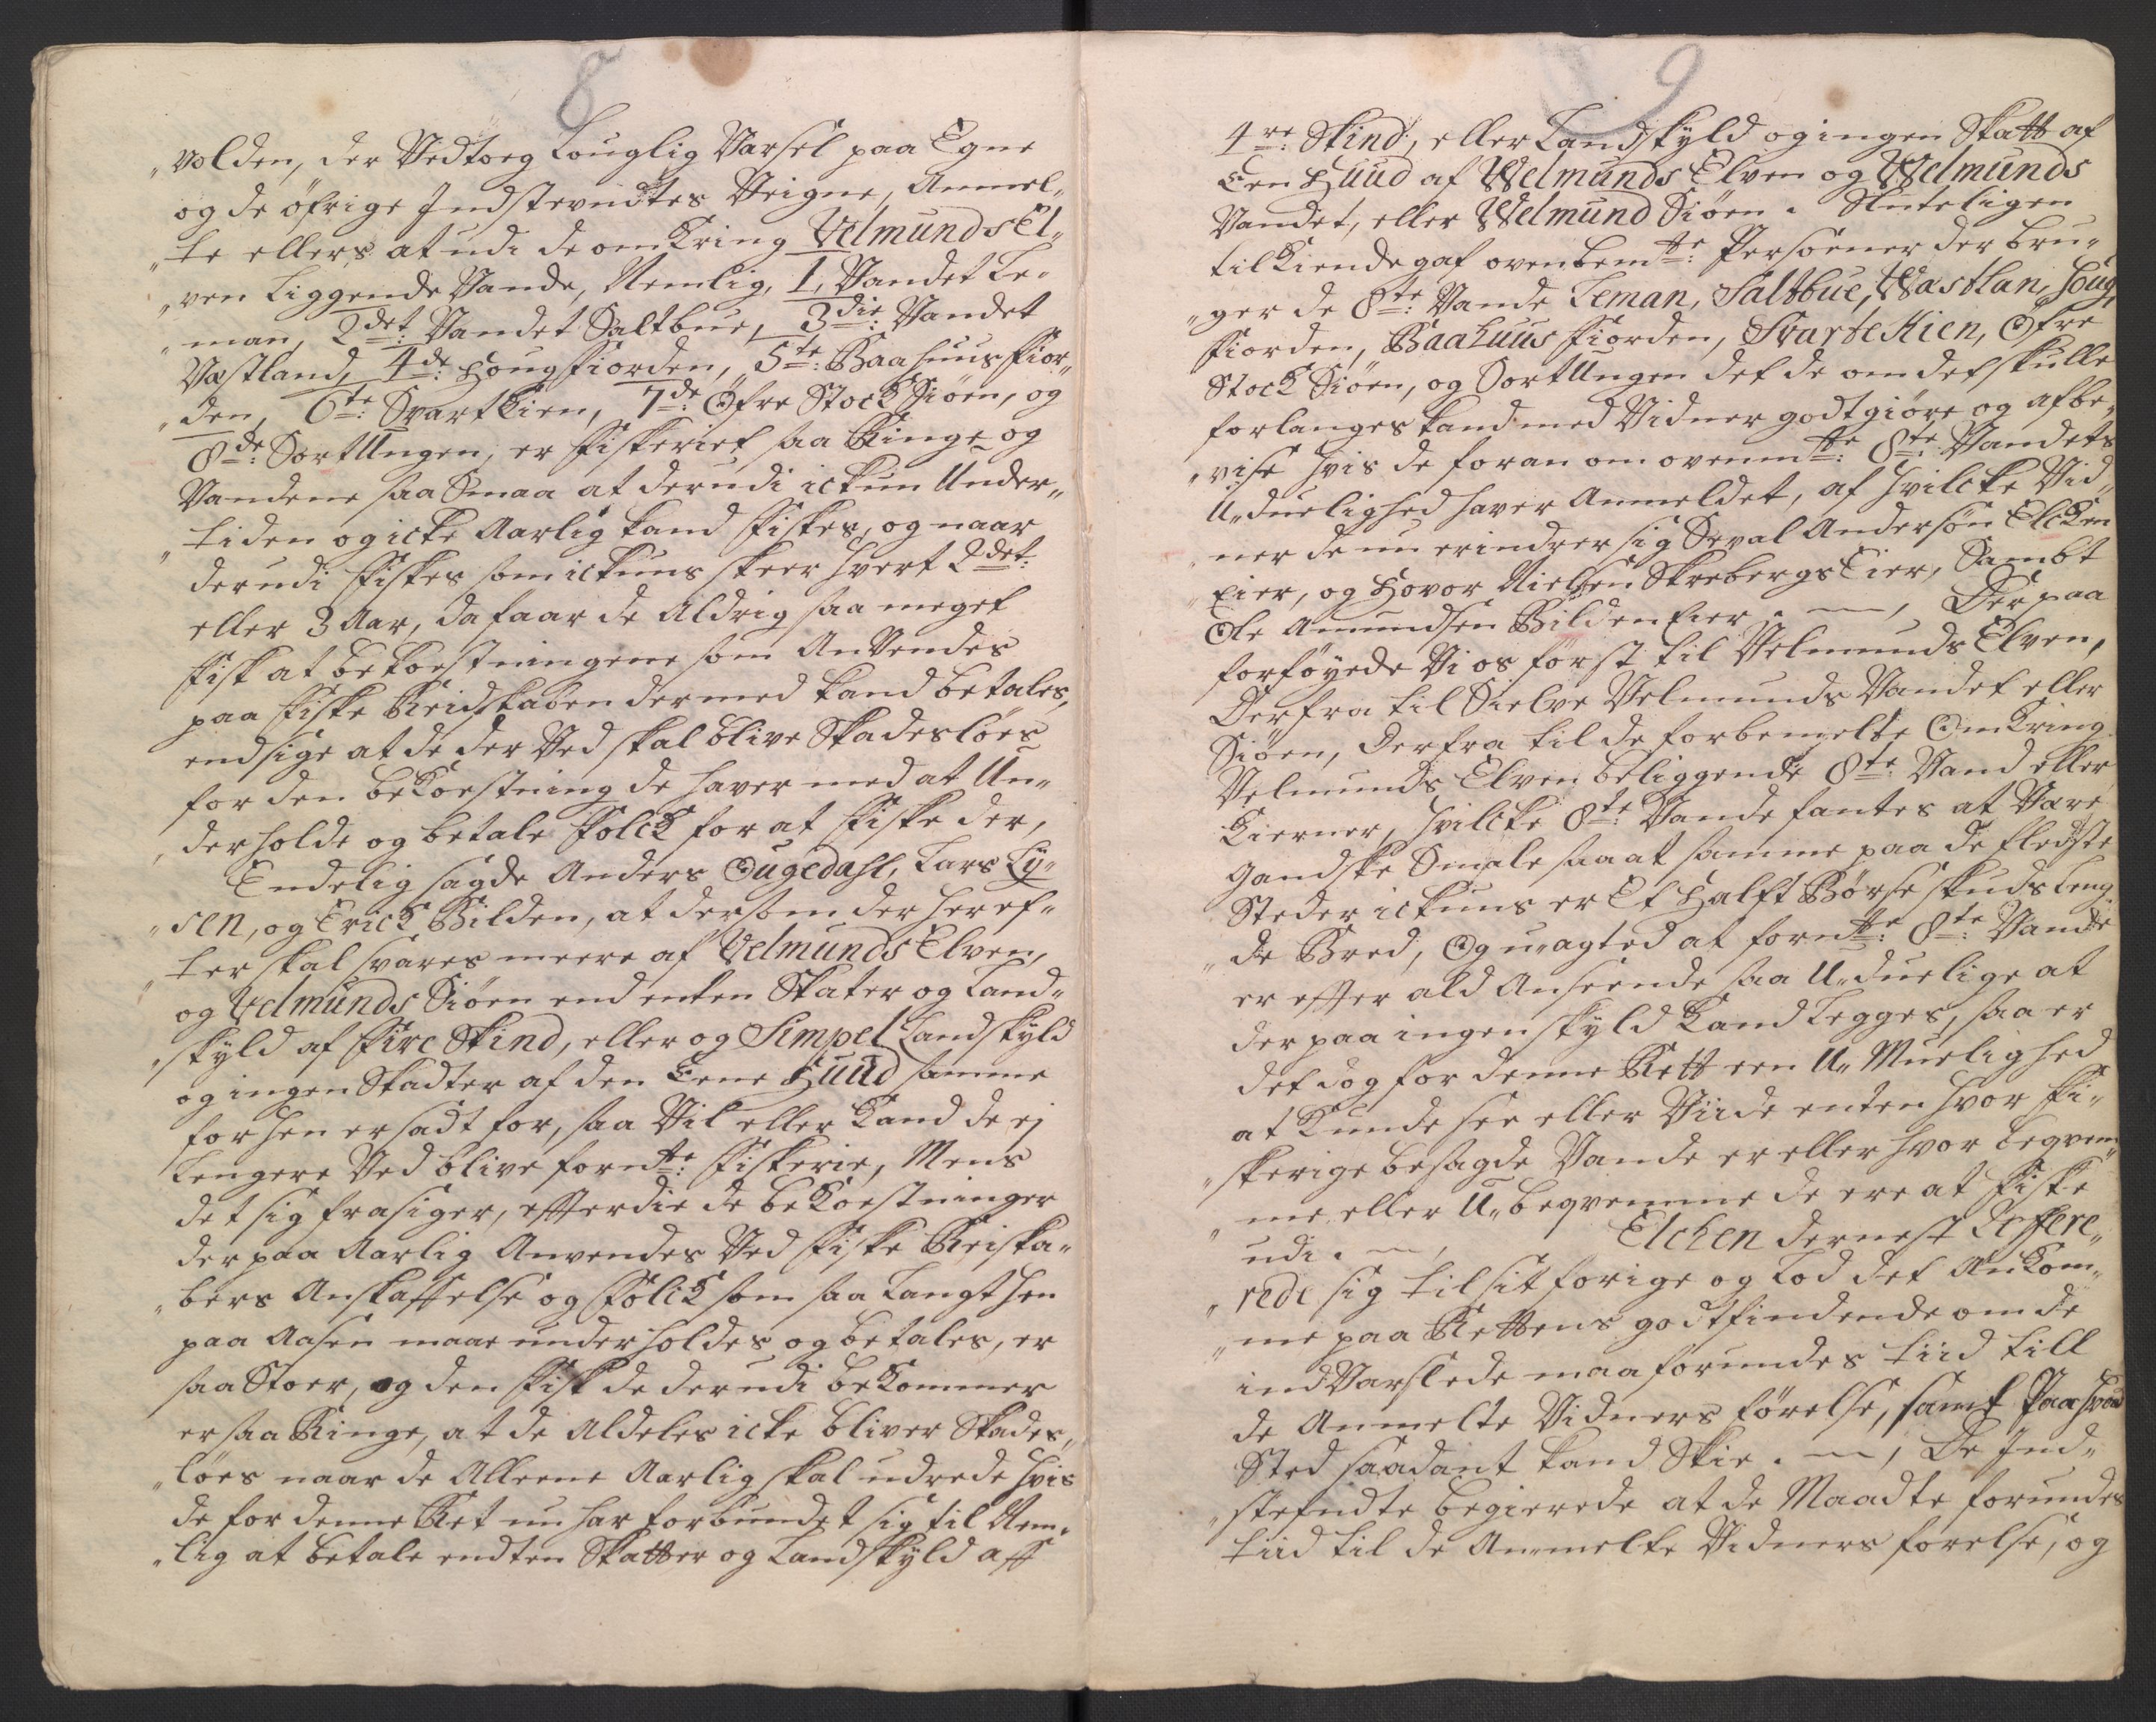 8
volden, der Vedtoeg Louglig Varsel paa Egne
og de öfrige Jndstevndtes Veigne, Anmel„
„te ellers at udi de omKring Velmunds El„
„ven Liggende Vande, Nemlig, 1, Vandet Le„
„man, 2det: Vandet Saltbue, 3die: Vandet
Vastland, 4de: Hougfiorden, 5te: Baahuusfior„
„den, 6te: Svartkien, 7de: Öfre StockSiöen, og
8de: SortUngen, er fiskeriet saa Ringe og
Vandene saa Smaa at derudi ickun Under„
„tiden og icke Aarlig kand fiskes, og naar
derudi fiskes som ickuns skeer hvert 2det:
eller 3 Aar, da faar de Aldrig saa meget
fisk at bekoestningene som Anvendes
paa fiske Reidskaben dermed kand betales,
endsige at de der Ved skal blive Skadeslöes
for den beKoestning de haver med at Un„
„derholde og betale Folck for at fiske der,
Endelig sagde Anders Ougedahl, Lars Ly„
„sen, og Erick Bilden, at dersom der heref„
„ter skal svares meere af Velmunds Elven,
og Velmunds Siöen end enten Skater og Land„
„skyld af fire Skind, eller og Simpel Landskyld
og ingen Skadter af den Eene Huud samme
forhen er sadt for, saa Vil eller Kand de ej
Lengere Ved blive fornte: fiskerie, Mens
det sig frasiger, efterdie de beKoestninger
der paa Aarlig Anvendes Ved fiske Reiska„
„bers Anskaffelse og Folck som saa Langt hen
paa Aasen maae underholdes og betales, er
saa Stoer, og den fisk de derudi beKommer
er saa Ringe, at de Aldeles icke bliver Skades„
„löes naar de Alleene Aarlig skal udrede hvis
de for denne Ret nu har forbundet sig til Nem„
„lig at betale endten Skatter og Landskyld aff
9
4re: Skind, eller Landskyld og ingen Skatt af
Een Huud af Welmunds Elven og Welmunds
Vandet, eller Welmund Siöen. Sluteligen
tilKiende gaf ovenbemte: Persoener der bru„
„ger de 8te: Vande Leman, Saltbue, Wastlan, Houg„
fiorden, Baahuus fiorden, SvarteKien, Öfre
Stock Siöen, og SortUngen det de om det skulle
forlanges kand med Vidner godtgiöre og afbe„
„vise hvis de foran om ovenmte: 8te: Vandets
U„duelighed haver Anmeldet, af hvilcke Vid„
„ner de nu erindrer sig Seval Andersön Elcken
Eier, og Hovor Nielsen Skrebergs Eier, Sambt
Ole Amundsen Bilden Eier. —, Der paa
forföyede Vi os först til Velmunds Elven,
Derfra til Sielve Velmunds Vandet eller
Siöen, derfra til de forbemelte OmKring
Velmunds Elven beliggende 8te: Vand eller
Kierner, hvilcke 8te: Vande fantes at Være
gandske Smale saa at samme paa de fleeste
Steder ickuns er Et halft Börse skuds Leng„
„de Bred, Og u„agted at fornte: 8te: Vande
er efter ald Anseende saa U„duelige at
der paa ingen skyld Kand Legges, saa er
det dog for denne Rett een U„Muelighed
at Kunde see eller Viide enten hvor fi„
„skerige besagde Vande er eller hvor beqvem„
„me eller U„beqvemme de ere at fiske
udi. —, Elchen dernest Reffere„
„rede sig til sit forige og Lod det AnKom„
„me paa Rettens godtfindende om de
indVarslede maa forundes tiid till
de Anmelte Vidners förelse, samt Paa hvad
Sted saadant kand Skie. —, De Jnd„
„stefndte begierede at de Maadte forundes
tiid til de Anmelte Vidners forelse, og